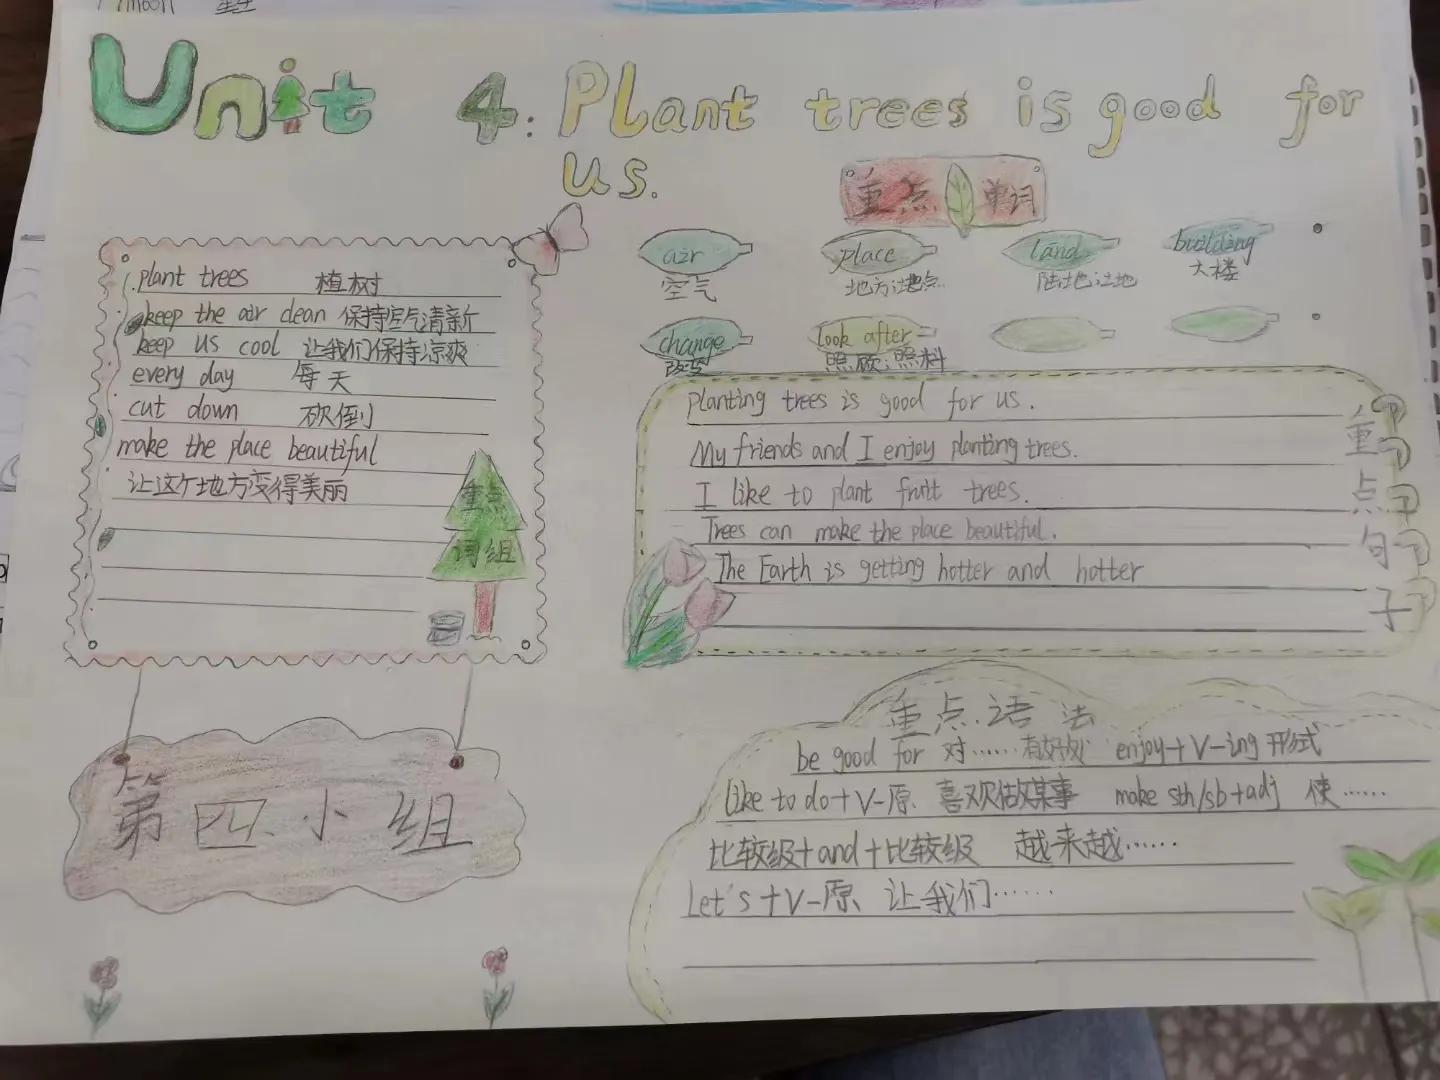 moon
Unit 4: Plant trees is good for
us.
重点 单词
air place land building
空气 地方;地点 陆地;让地 大楼
change look after
改变 照顾;照料
plant trees 植树
keep the air clean 保持空气清新
keep us cool 让我们保持凉爽
every day 每天
cut down 砍倒
make the place beautiful
让这个地方变得美丽
重点
词组
Planting trees is good for us.
My friends and I enjoy planting trees.
I like to plant fruit trees.
Trees can make the place beautiful.
The Earth is getting hotter and hotter
重点句子
第四小组
重点语法
be good for 对……有好处 enjoy+V-ing形式
like to do+V-原 喜欢做某事 make sth/sb+adj 使……
比较级+and+比较级 越来越……
Let's+V-原 让我们……